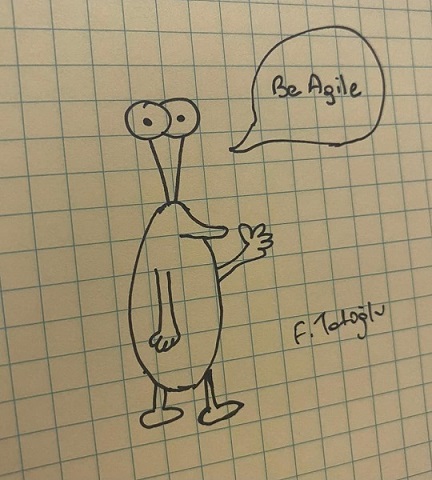 Be Agile
F. Tatoğlu